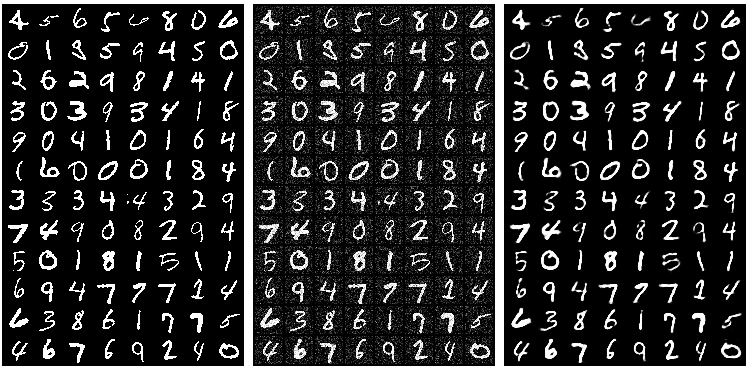 4 5 6 5 6 8 0 6
0 1 8 5 9 4 5 0
2 6 2 9 8 1 4 1
3 0 3 9 3 4 1 8
9 0 4 1 0 1 6 4
1 6 0 0 0 1 8 4
3 3 3 4 4 3 2 9
7 4 9 0 8 2 9 4
5 0 1 8 1 5 1 1
6 9 4 7 7 7 2 4
6 3 8 6 1 7 7 5
4 6 7 6 9 2 4 0
4 5 6 5 6 8 0 6
0 1 8 5 9 4 5 0
2 6 2 9 8 1 4 1
3 0 3 9 3 4 1 8
9 0 4 1 0 1 6 4
1 6 0 0 0 1 8 4
3 3 3 4 4 3 2 9
7 4 9 0 8 2 9 4
5 0 1 8 1 5 1 1
6 9 4 7 7 7 2 4
6 3 8 6 1 7 7 5
4 6 7 6 9 2 4 0
4 5 6 5 6 8 0 6
0 1 8 5 9 4 5 0
2 6 2 9 8 1 4 1
3 0 3 9 3 4 1 8
9 0 4 1 0 1 6 4
1 6 0 0 0 1 8 4
3 3 3 4 4 3 2 9
7 4 9 0 8 2 9 4
5 0 1 8 1 5 1 1
6 9 4 7 7 7 2 4
6 3 8 6 1 7 7 5
4 6 7 6 9 2 4 0